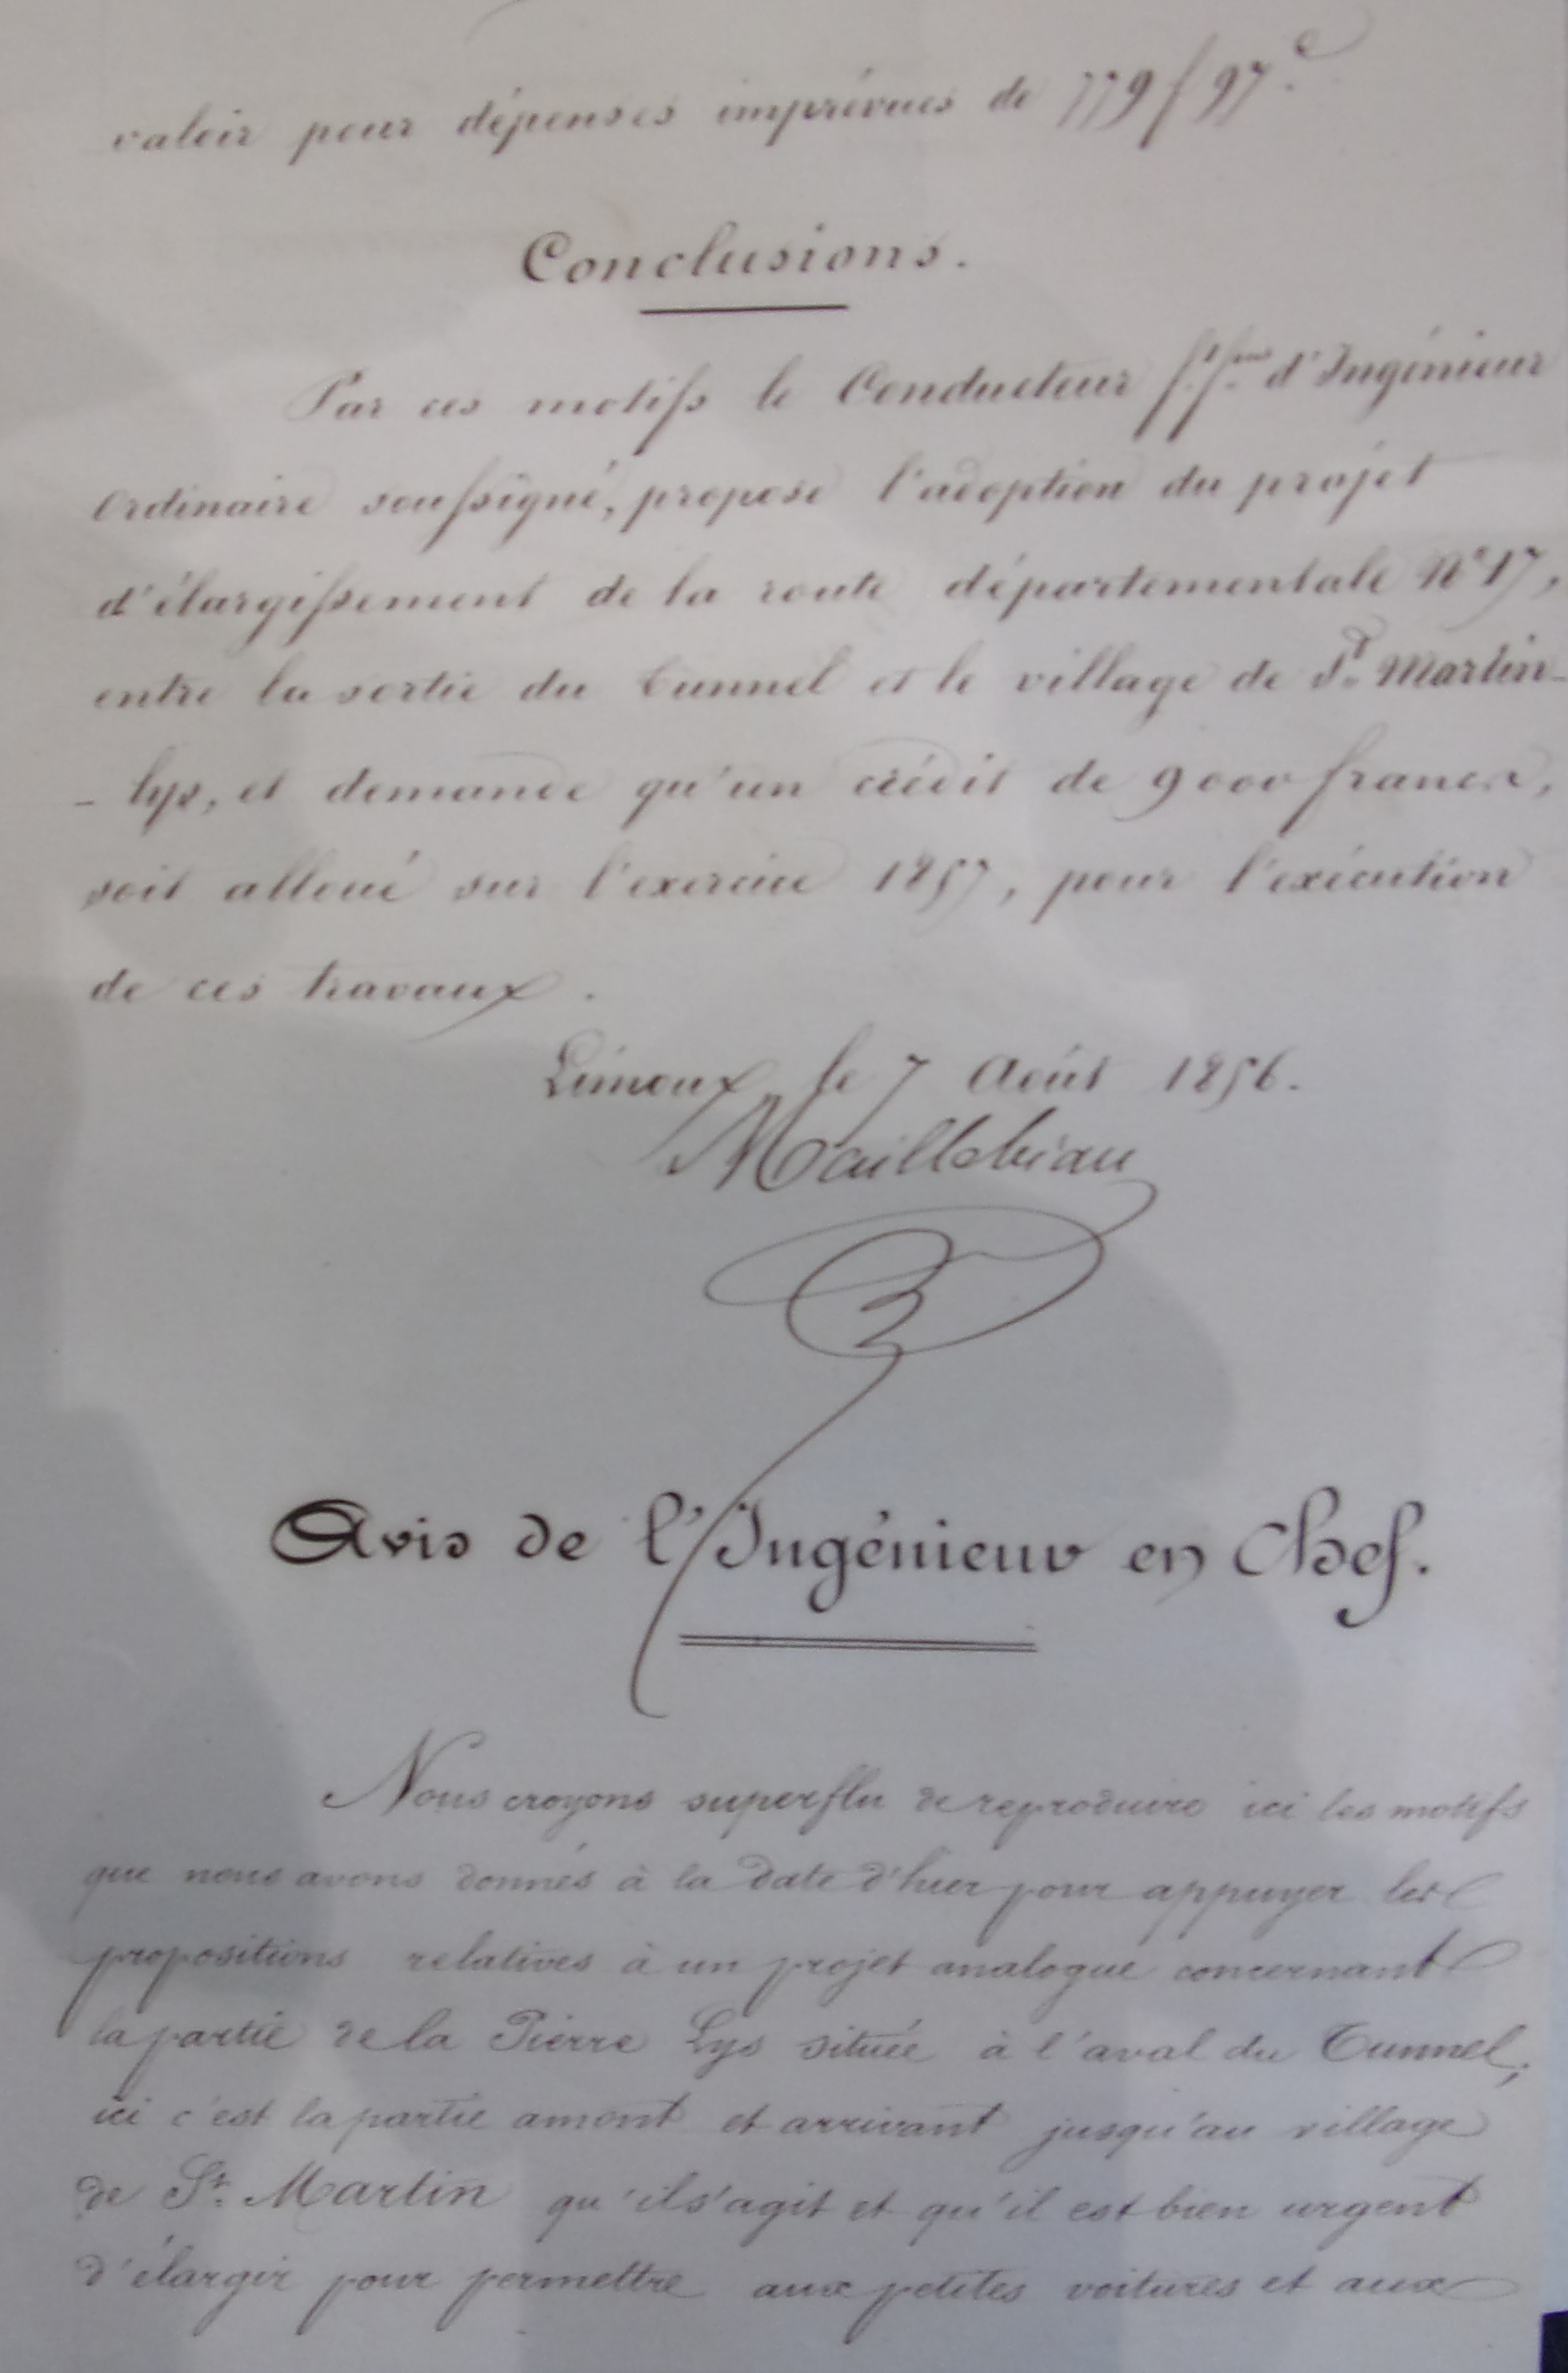 valoir pour dépenses imprévues de 779f 97c.
Conclusions.
Par ces motifs le Conducteur f.f.ons d'Ingénieur
Ordinaire soussigné, propose l'adoption du projet
d'élargissement de la route départementale N° 17,
entre la sortie du tunnel et le village de St. Martin-
- Lys, et demande qu'un crédit de 9000 francs,
soit alloué sur l'exercice 1857, pour l'exécution
de ces travaux.
Limoux, le 7 Août 1856.
Maillebiau
Avis de l'Ingénieur en Chef.
Nous croyons superflu de reproduire ici les motifs
que nous avons donnés à la date d'hier pour appuyer les
propositions relatives à un projet analogue concernant
la partie de la Pierre Lys située à l'aval du Tunnel;
ici c'est la partie amont et arrivant jusqu'au village
de St. Martin qu'il s'agit et qu'il est bien urgent
d'élargir pour permettre aux petites voitures et aux